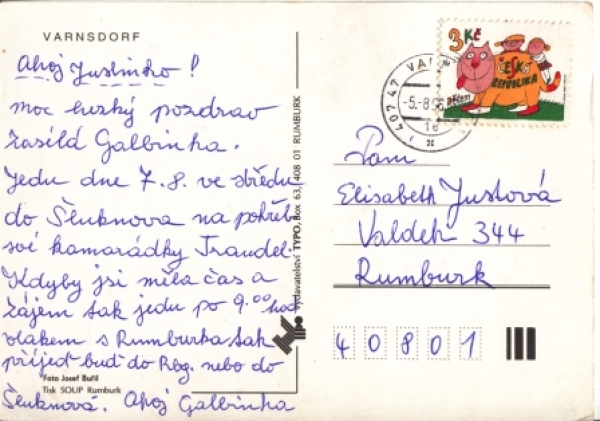 VARNSDORF
Ahoj Justinko!
moc hezký pozdrav
zasílá Galbinka.
Jedu dne 7.8. ve středu
do Šluknova na pohřeb
své kamarádky Traudel.
Kdyby jsi měla čas a
zájem tak jedu po 9.00 hod
vlakem s Rumburka tak
přijeď buď do Rbg. nebo do
Foto Josef Bufil
Tisk SOUP Rumburk
Šluknová. Ahoj Galbinka
Vydavatelství TYPO, Box 63, 408 01 RUMBURK
3 Kč
ČESKÁ
REPUBLIKA
dětem
407 47
-5.-8
Paní
Elisabeth Justová
Valdek 344
Rumburk
40801